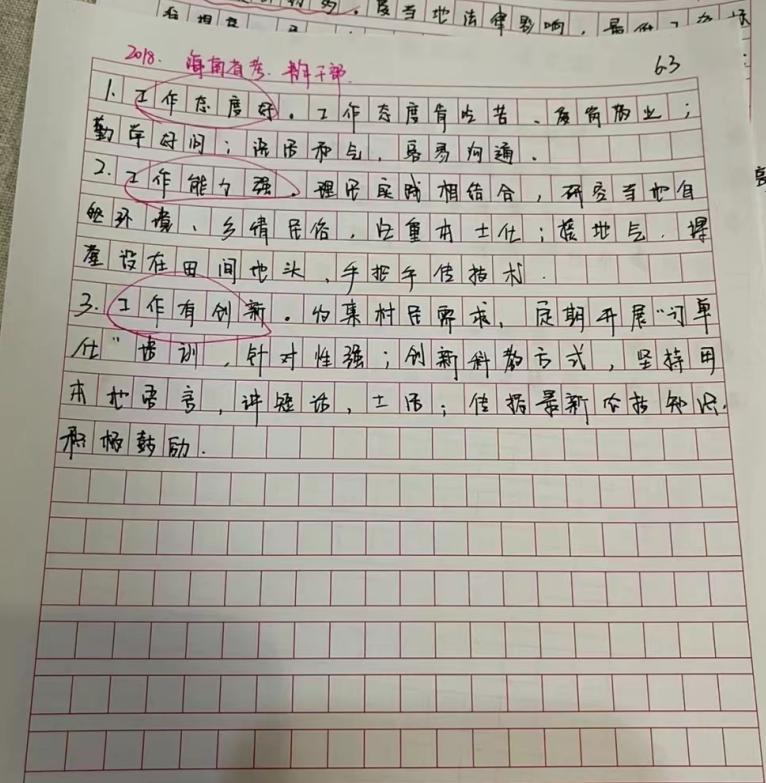 度当地法律影响
2018. 海南省考. 青年干部. 63
1. 工作态度好。工作态度肯吃苦、爱岗敬业；
勤学好问；语言和气,容易沟通.
2. 工作能力强。理论实践相结合,研究当地自
然环境、乡情民俗,注重本土化；接地气,课
堂设在田间地头,手把手传技术.
3. 工作有创新。收集村民需求,定期开展“订单
式”培训,针对性强；创新科教方式,坚持用
本地语言,讲短话,土话；传播最新农技知识.
积极鼓励.